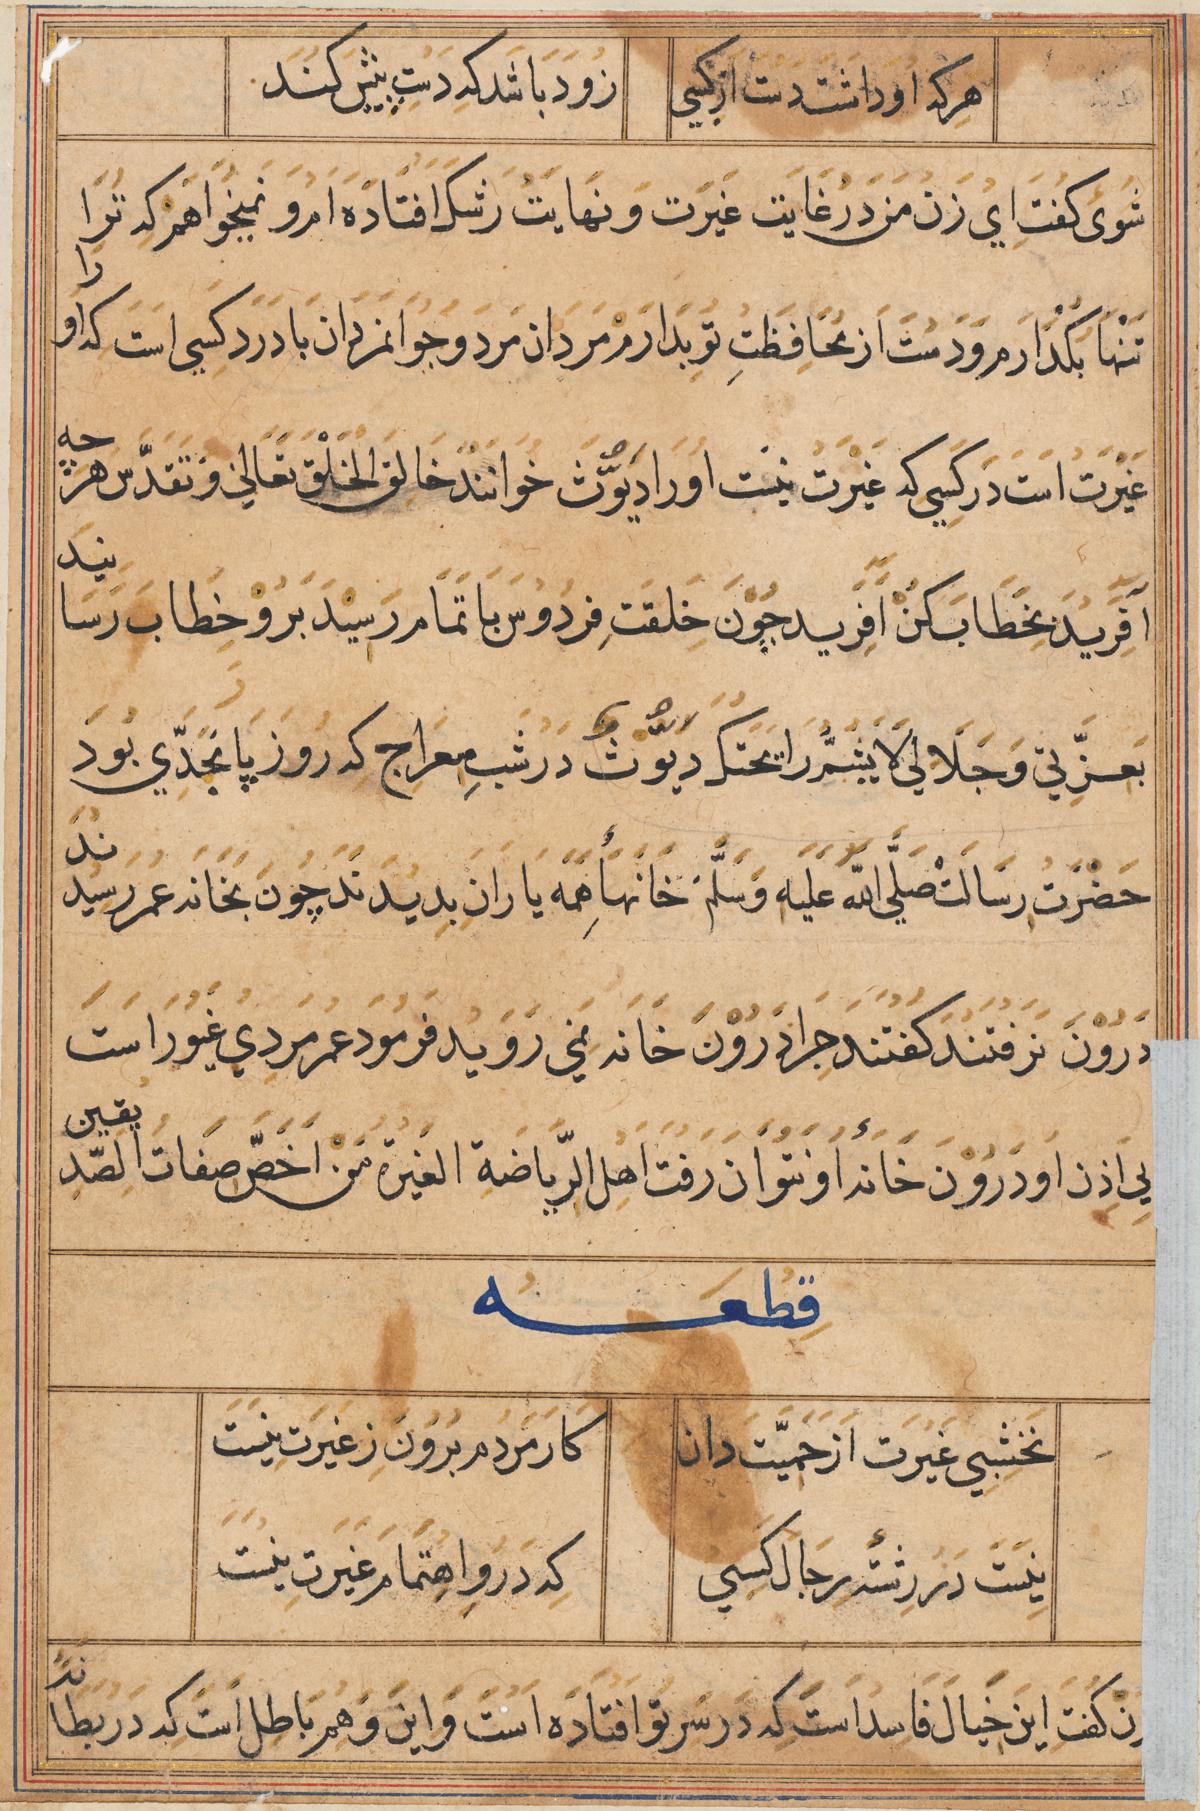 هر که او داشت دست از کسی زود باشد که دست پیش کند
شوی گفت ای زن من در غایت غیرت و نهایت رشک افتاده ام و نمیخواهم که ترا
تنها بگذارم و دست از محافظت تو بدارم مردان مرد و جوانمردان با درد کسی است که او را
غیرت است در کسی که غیرت نیست او را دیوث خوانند خالق الخلق تعالی و تقدس هر چه
آفرید بخطاب کن آفرید چون خلقت فردوس باتمام رسید برو خطاب رسانید
بعزتی و جلالی لا یشم رایحتک دیوث در شب معراج که روز پا بجدی بود
حضرت رسالت صلی الله علیه وسلم خانهاء همه یاران بدیدند چون بخانه عمر رسیدند
درون نرفتند گفتند چرا درون خانه نمی روید فرمود عمر مردی غیور است
بی اذن او درون خانه او نتوان رفت اهل الریاضة الغیرة من اخص صفات الصدیقین
قطعه
نخشبی غیرت از حمیت دان کار مردم برون ز غیرت نیست
نیست در رشته رجال کسی که درو اهتمام غیرت نیست
زن گفت این خیال فاسد است که در سر تو افتاده است و این وهم باطل است که در بطانه